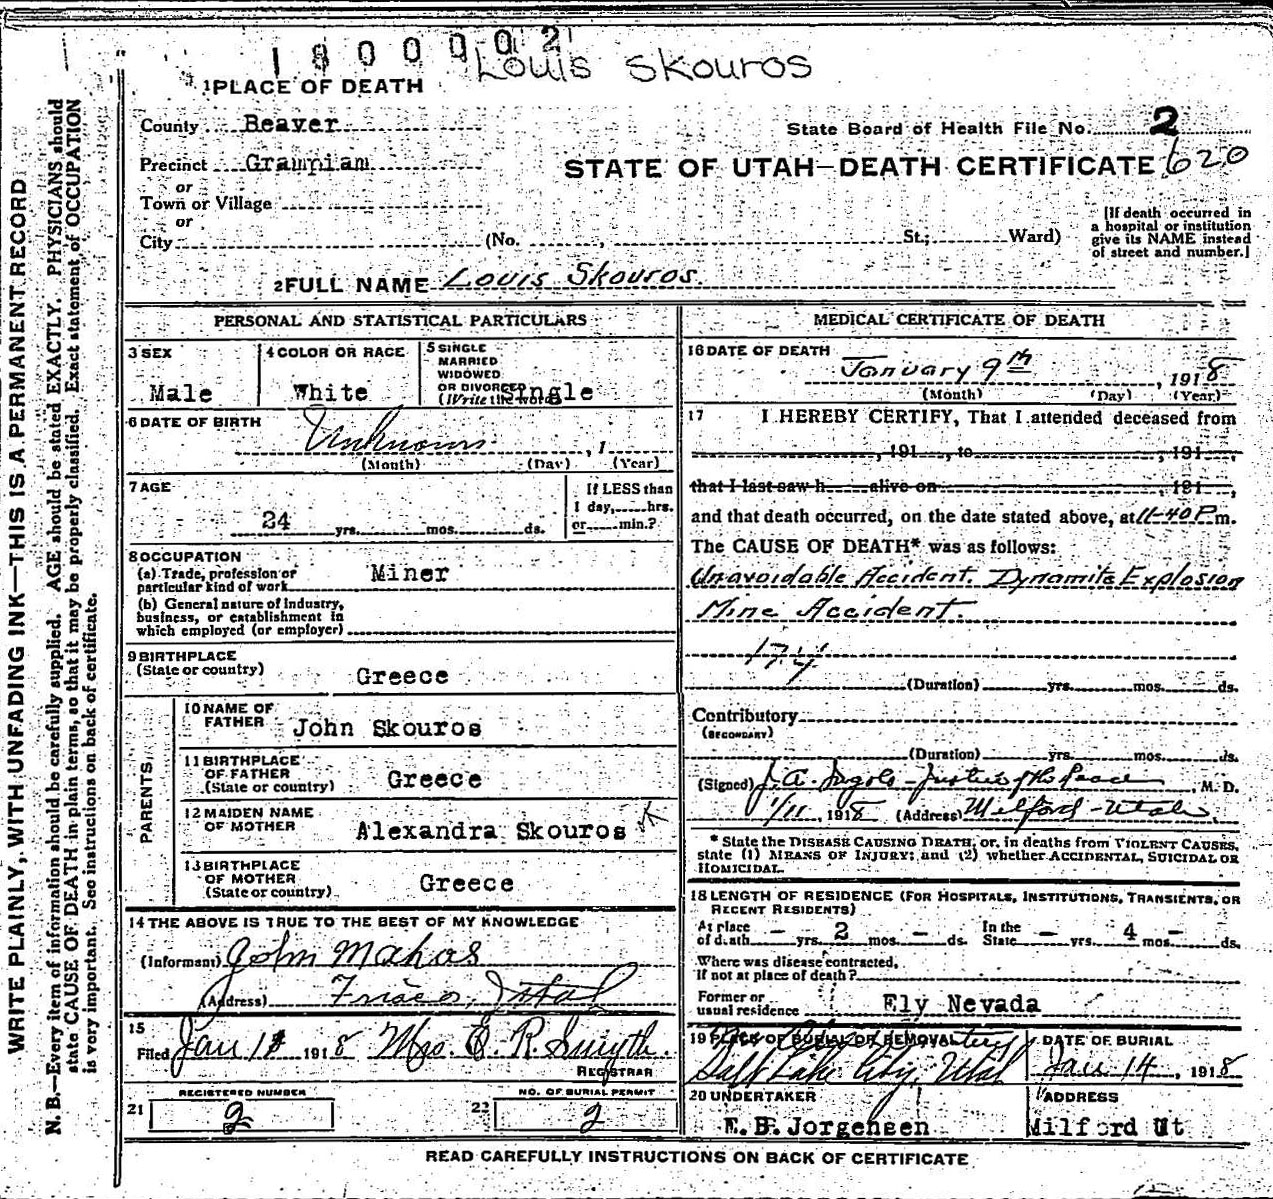 1800002
Louis Skouros
1 PLACE OF DEATH
County Beaver
State Board of Health File No. 2
Precinct Grampiam
STATE OF UTAH—DEATH CERTIFICATE 620
or
Town or Village
or
City (No. , St.; Ward)
[If death occurred in
a hospital or institution
give its NAME instead
of street and number.]
2 FULL NAME Louis Skouros.
PERSONAL AND STATISTICAL PARTICULARS
3 SEX
Male
4 COLOR OR RACE
White
5 SINGLE
MARRIED
WIDOWED
OR DIVORCED
(Write the word)
Single
6 DATE OF BIRTH
Unknown. , 1
(Month) (Day) (Year)
7 AGE
24 yrs. mos. ds.
If LESS than
1 day, hrs.
or min.?
8 OCCUPATION
(a) Trade, profession or
particular kind of work Miner
(b) General nature of industry,
business, or establishment in
which employed (or employer)
9 BIRTHPLACE
(State or country) Greece
PARENTS
10 NAME OF
FATHER John Skouros
11 BIRTHPLACE
OF FATHER
(State or country) Greece
12 MAIDEN NAME
OF MOTHER Alexandra Skouros
13 BIRTHPLACE
OF MOTHER
(State or country) Greece
14 THE ABOVE IS TRUE TO THE BEST OF MY KNOWLEDGE
(Informant) John Mahas
(Address) Frisco, Utah
15
Filed Jan 1 1918 Mrs. E. R. Smyth.
REGISTRAR
REGISTERED NUMBER
21 2
NO. OF BURIAL PERMIT
22 2
MEDICAL CERTIFICATE OF DEATH
16 DATE OF DEATH
January 9th , 1918
(Month) (Day) (Year)
17 I HEREBY CERTIFY, That I attended deceased from
, 191 , to , 191 ,
that I last saw h alive on , 191 ,
and that death occurred, on the date stated above, at 11-40 P. m.
The CAUSE OF DEATH* was as follows:
Unavoidable Accident. Dynamite Explosion
Mine Accident.
174
(Duration) yrs. mos. ds.
Contributory
(SECONDARY)
(Duration) yrs. mos. ds.
(Signed) J. A. Justice of the Peace , M. D.
1/11, 1918 (Address) Milford-Utah.
* State the DISEASE CAUSING DEATH, or, in deaths from VIOLENT CAUSES,
state (1) MEANS OF INJURY; and (2) whether ACCIDENTAL, SUICIDAL OR
HOMICIDAL.
18 LENGTH OF RESIDENCE (FOR HOSPITALS, INSTITUTIONS, TRANSIENTS, OR
RECENT RESIDENTS)
At place
of death — yrs. 2 mos. — ds. In the
State — yrs. 4 mos. — ds.
Where was disease contracted,
If not at place of death?
Former or
usual residence Ely Nevada
19 PLACE OF BURIAL OR REMOVAL
Salt Lake City, Utah
DATE OF BURIAL
Jan 14, 1918
20 UNDERTAKER
E. B. Jorgensen
ADDRESS
Milford Ut
READ CAREFULLY INSTRUCTIONS ON BACK OF CERTIFICATE
WRITE PLAINLY, WITH UNFADING INK—THIS IS A PERMANENT RECORD
N. B.—Every item of information should be carefully supplied. AGE should be stated EXACTLY. PHYSICIANS should
state CAUSE OF DEATH in plain terms, so that it may be properly classified. Exact statement of OCCUPATION
is very important. See instructions on back of certificate.